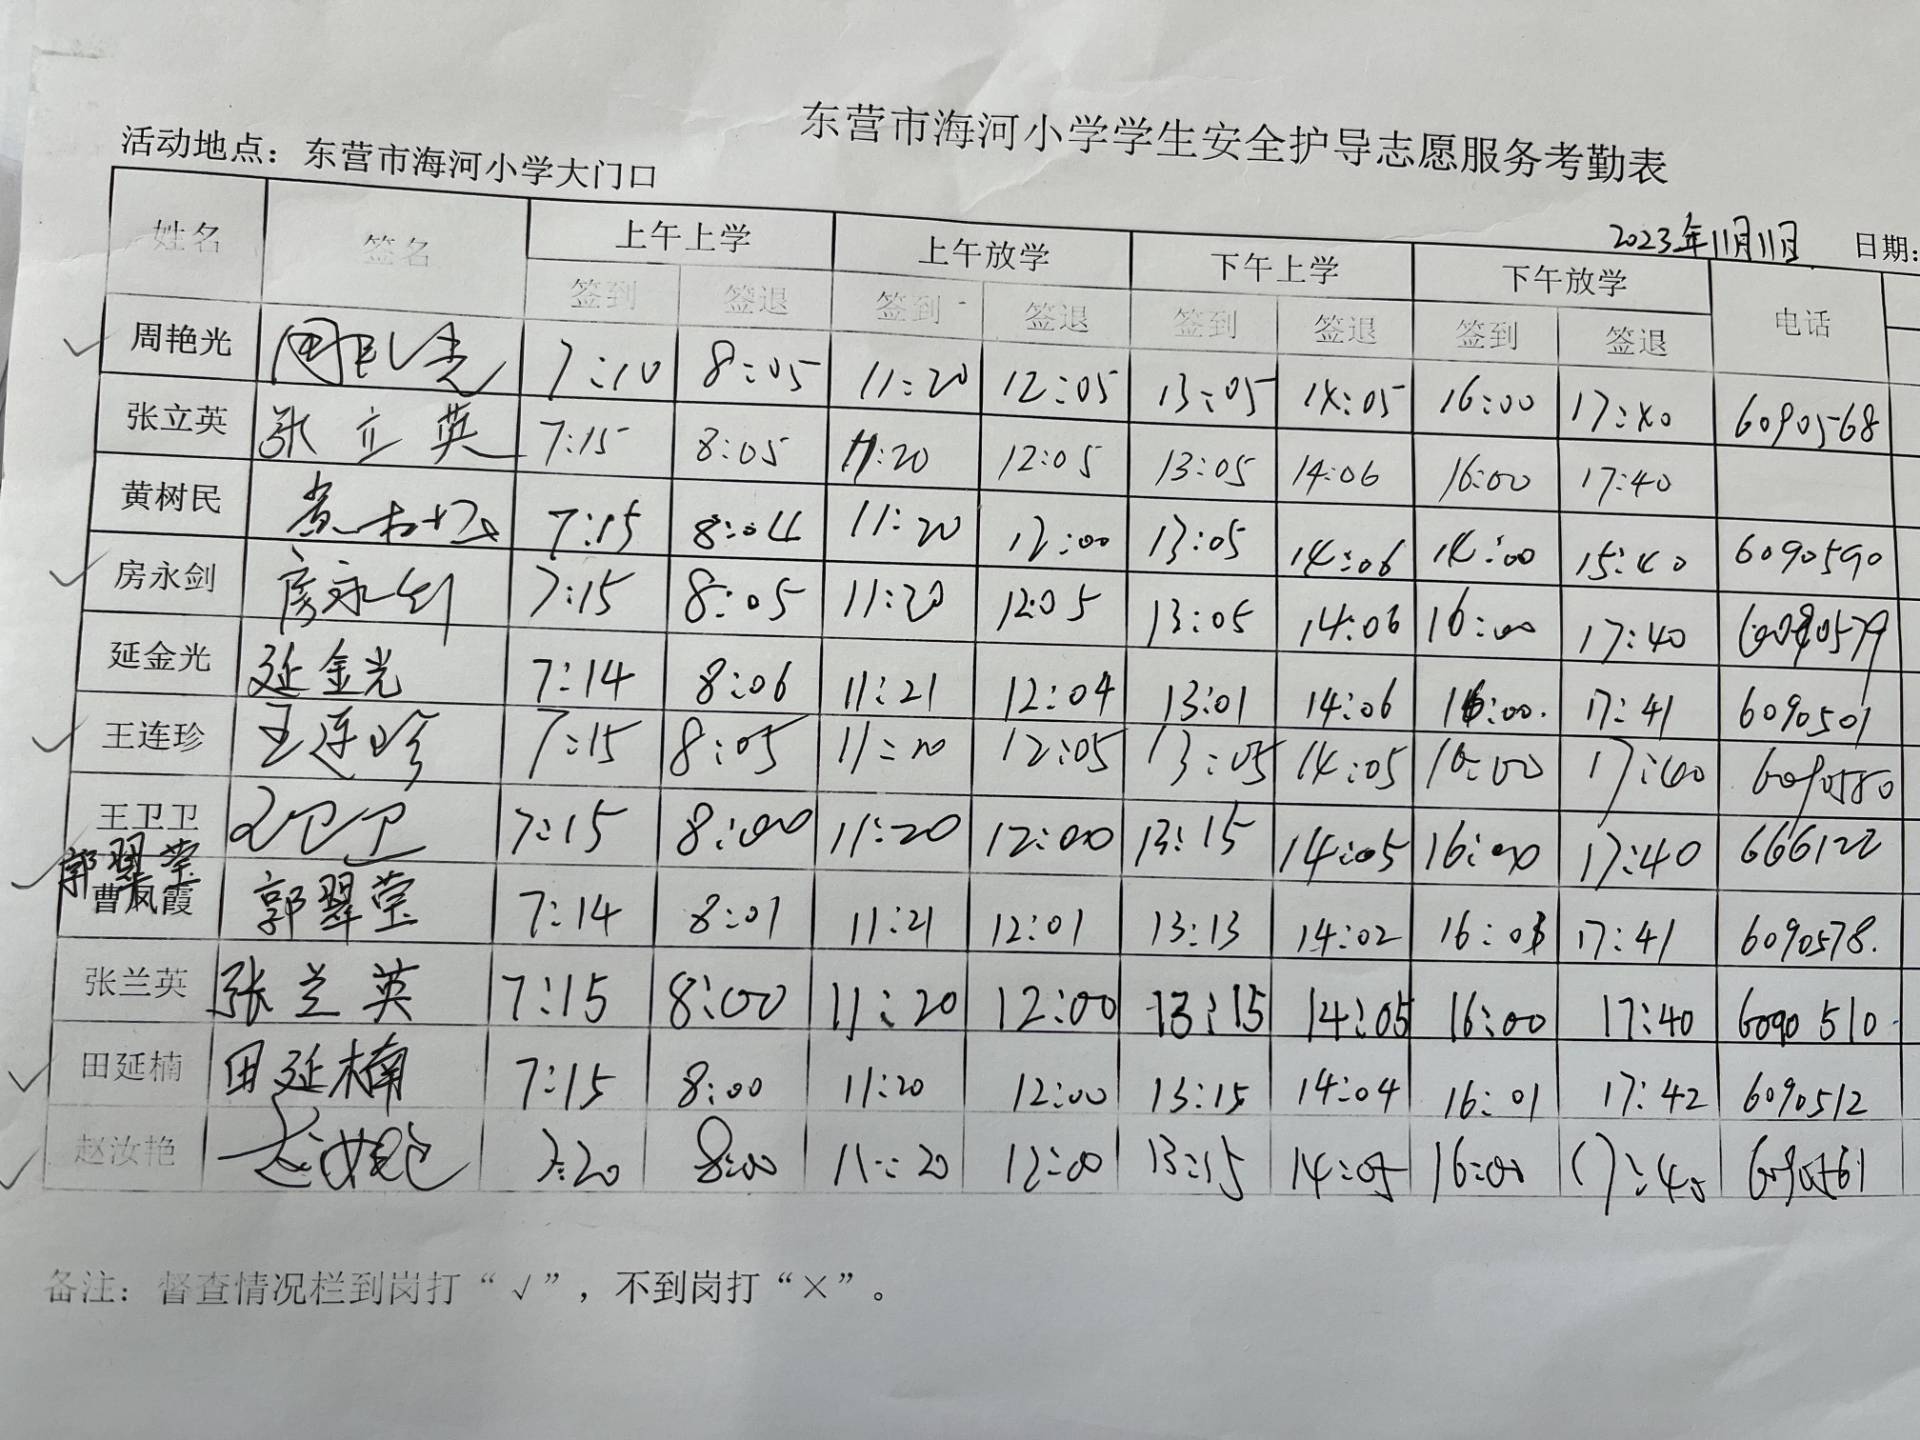 东营市海河小学学生安全护导志愿服务考勤表
活动地点：东营市海河小学大门口
2023年11月11日 日期：
姓名 签名 上午上学 上午放学 下午上学 下午放学 电话
签到 签退 签到 签退 签到 签退 签到 签退
周艳光 周艳光 7:10 8:05 11:20 12:05 13:05 14:05 16:00 17:40 6090568
张立英 张立英 7:15 8:05 11:20 12:05 13:05 14:06 16:00 17:40
黄树民 黄树民 7:15 8:04 11:20 12:00 13:05 14:06 14:00 15:40 6090590
房永剑 房永剑 7:15 8:05 11:20 12:05 13:05 14:06 16:00 17:40 6090579
延金光 延金光 7:14 8:06 11:21 12:04 13:01 14:06 16:00. 17:41 6090501
王连珍 王连珍 7:15 8:05 11:20 12:05 13:05 14:05 16:00 17:40 6090580
王卫卫 王卫卫 7:15 8:00 11:20 12:00 13:15 14:05 16:00 17:40 666122
郭翠莹
曹凤霞 郭翠莹 7:14 8:01 11:21 12:01 13:13 14:02 16:03 17:41 6090578.
张兰英 张兰英 7:15 8:00 11:20 12:00 13:15 14:05 16:00 17:40 6090510
田延楠 田延楠 7:15 8:00 11:20 12:00 13:15 14:04 16:01 17:42 6090512
赵汝艳 赵汝艳 7:20 8:00 11:20 12:00 13:15 14:05 16:00 17:40 6090561
备注：督查情况栏到岗打“√”，不到岗打“×”。